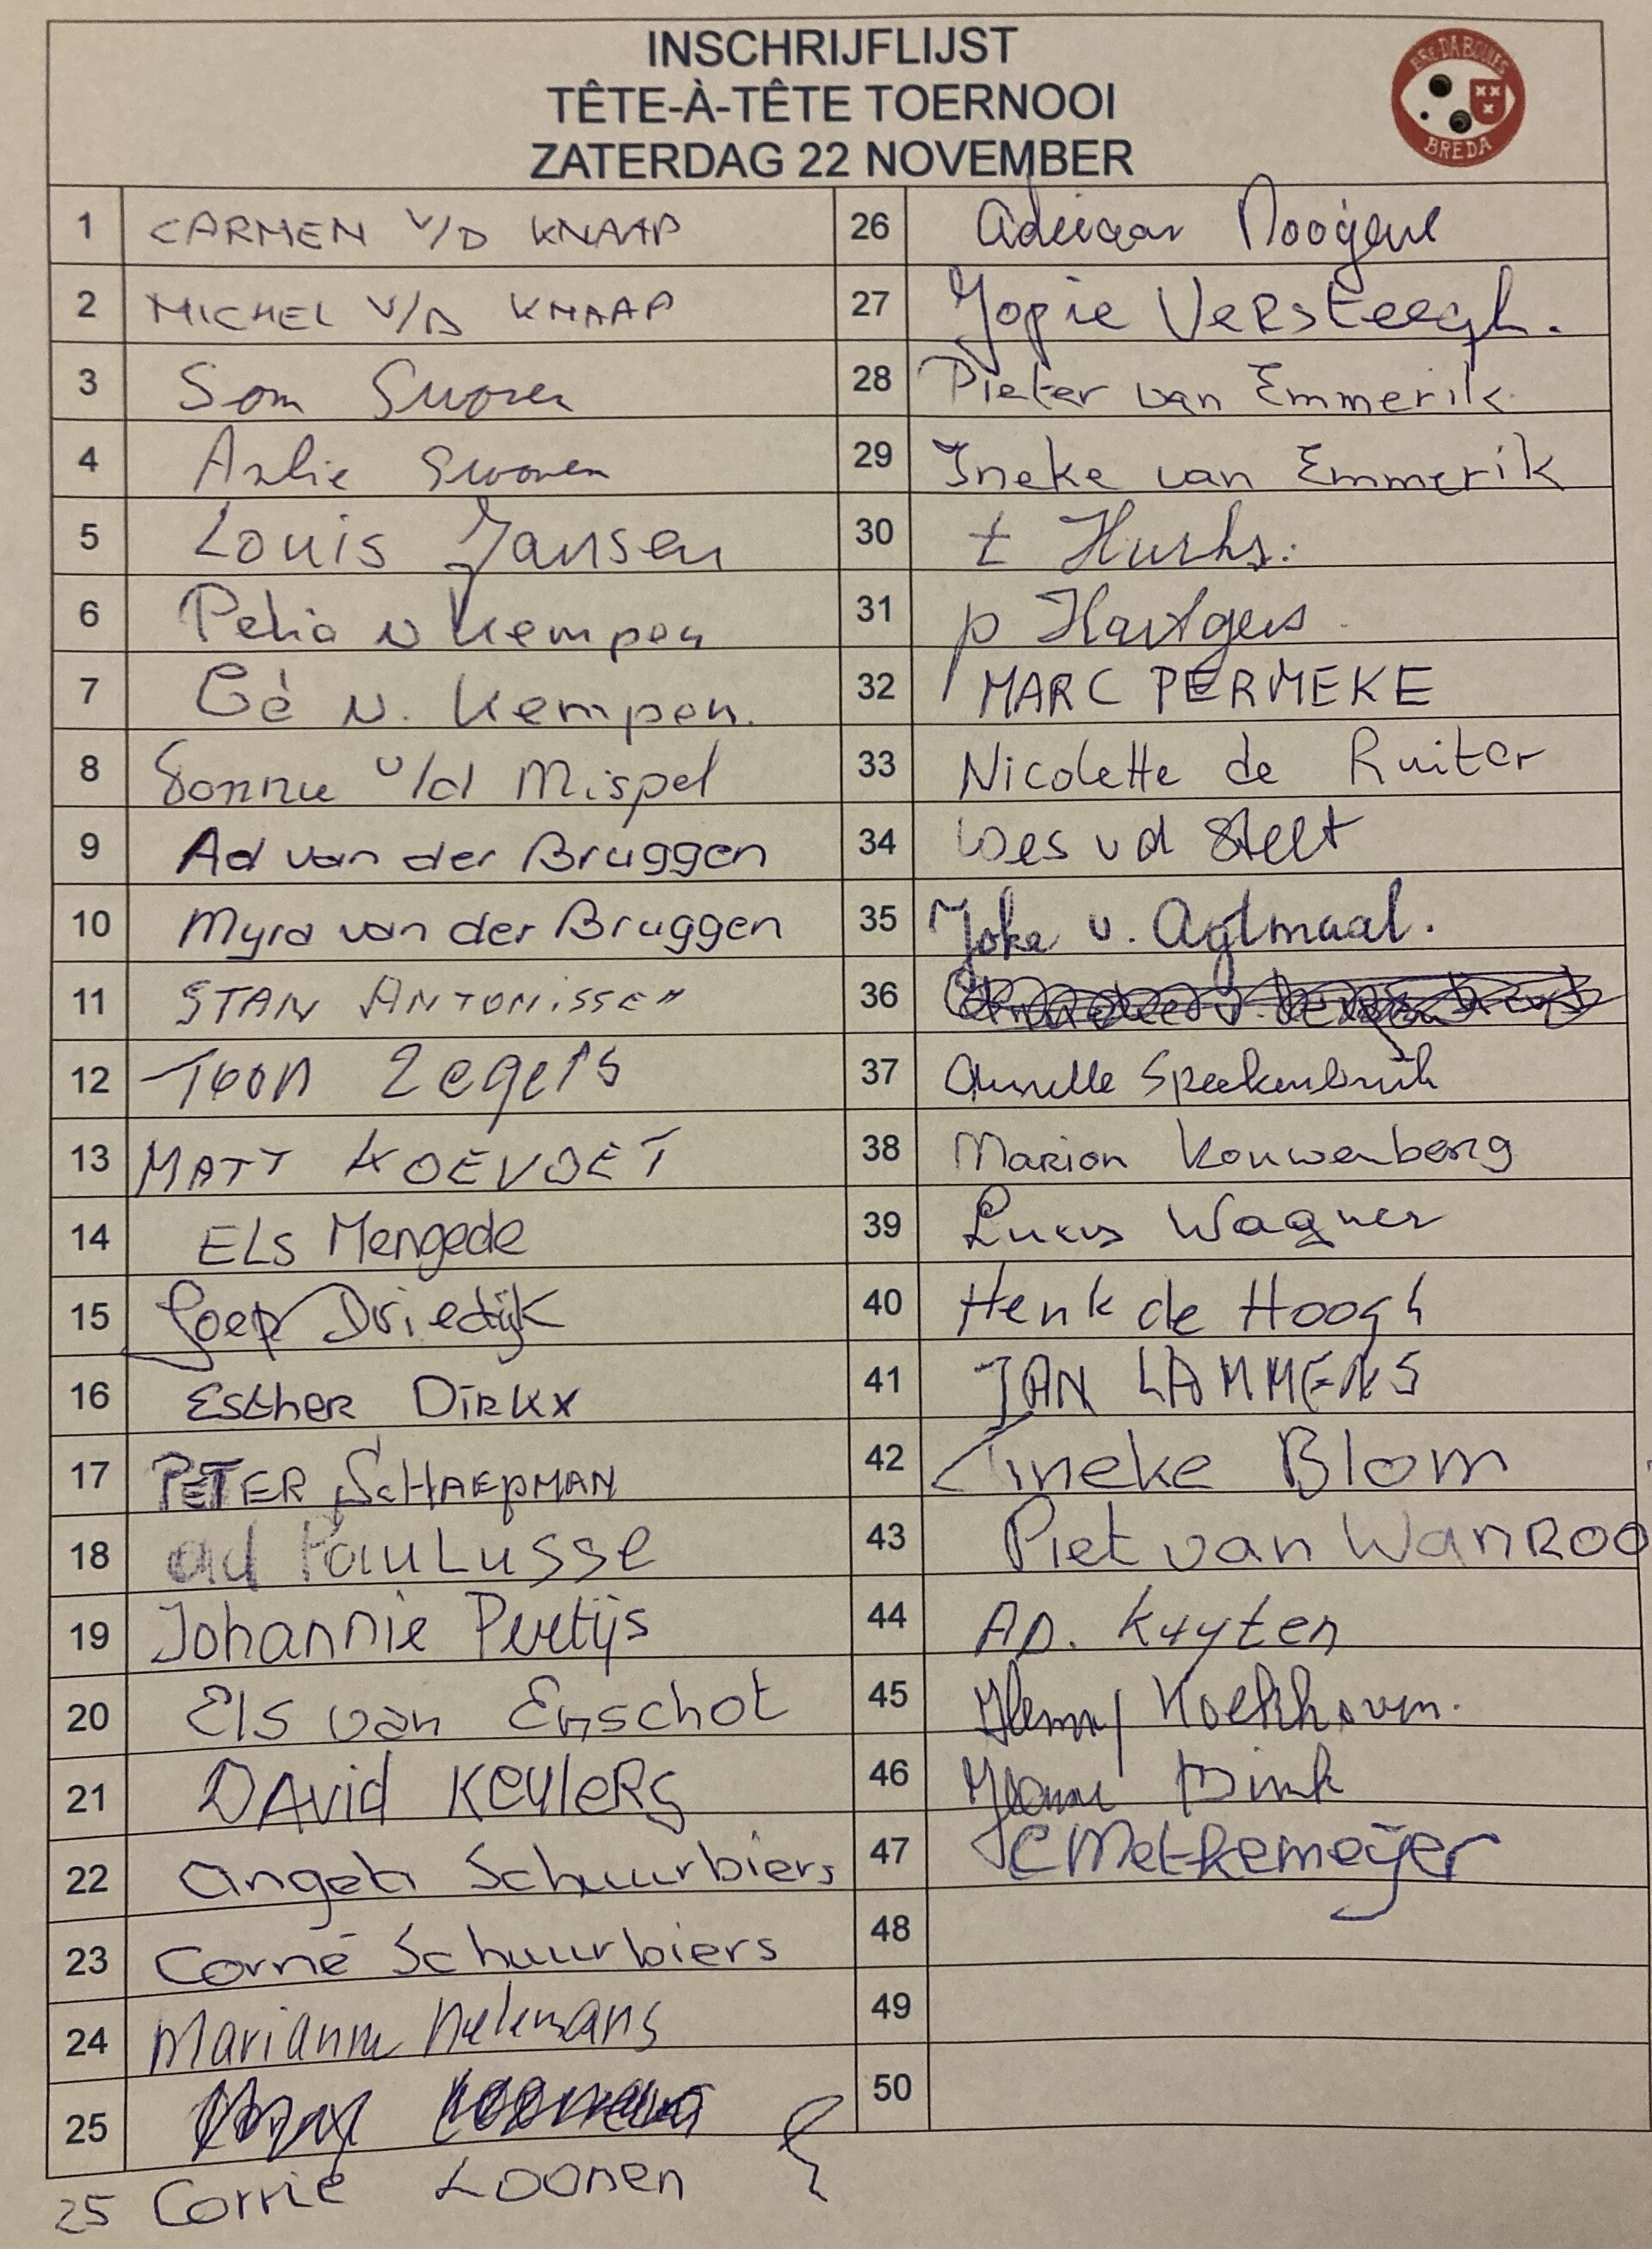 INSCHRIJFLIJST
TÊTE-À-TÊTE TOERNOOI
ZATERDAG 22 NOVEMBER
BREDA BOULES
BREDA
1 CARMEN V/D KNAAP
2 MICHEL V/D KNAAP
3
4
5 Louis Jansen
6 Petia v Kempen
7 Gé v. Kempen.
8 v/d Mispel
9 Ad van der Bruggen
10 Myra van der Bruggen
11 STAN ANTONISSEN
12 Toon Zegers
13 MATT KOEVOET
14 ELS Mengede
15 Joep Driedijk
16 Esther Dirkx
17 PETER SCHAEPMAN
18 ad PauLusse
19 Johannie Pertijs
20 Els van Enschot
21 DAVID KeuleRs
22 Angela Schuurbiers
23 Corné Schuurbiers
24 Marianne
25
25 Corrie Loonen
26
27 Jopie VeRsteegh.
28 Pieter van Emmerik
29 Ineke van Emmerik
30 t
31 p Hartgers
32 MARC PERMEKE
33 Nicolette de Ruiter
34 Loes vd Stelt
35 Joke v. Agtmaal.
36
37
38 Marion Kouwenberg
39 Lucas Wagner
40 Henk de Hoogh
41 JAN LAMMENS
42 Tineke Blom
43 Piet van WanROO
44 AD. Kuyten
45 Henny
46
47 C Metkemeijer
48
49
50